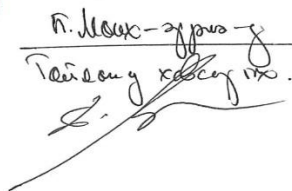 П. Мөнх-эрдэ-д
Тайланд хавсаргах.